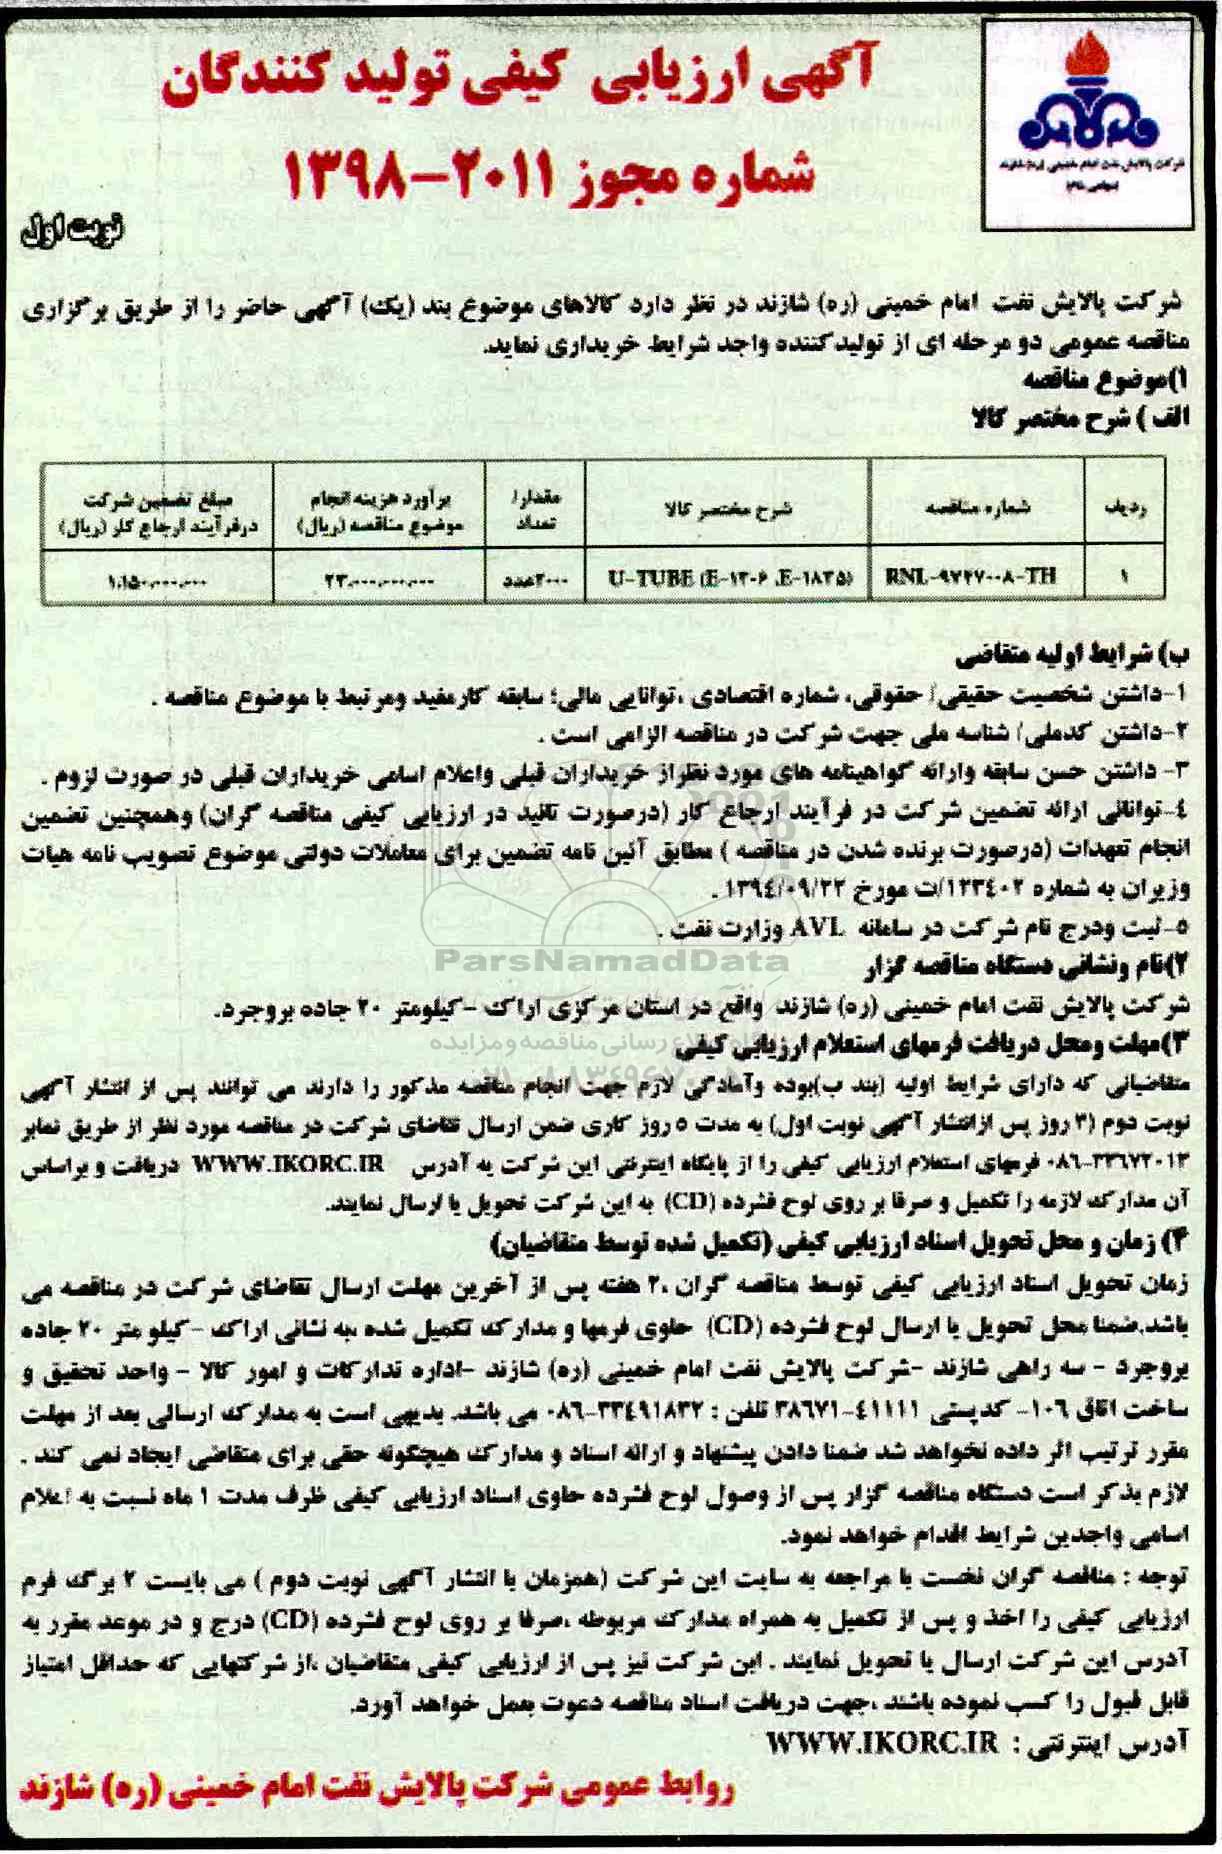 آگهی ارزیابی کیفی تولید کنندگان
شماره مجوز ۲۰۱۱-۱۳۹۸
نوبت اول
شرکت پالایش نفت امام خمینی (ره) شازند
شرکت پالایش نفت امام خمینی (ره) شازند در نظر دارد کالاهای موضوع بند (یک) آگهی حاضر را از طریق برگزاری
مناقصه عمومی دو مرحله ای از تولیدکننده واجد شرایط خریداری نماید.
۱)موضوع مناقصه
الف ) شرح مختصر کالا
ردیف شماره مناقصه شرح مختصر کالا مقدار/ تعداد برآورد هزینه انجام موضوع مناقصه (ریال) مبلغ تضمین شرکت درفرآیند ارجاع کار (ریال)
۱ RNL-۹۷۴۷۰۰۸-TH U-TUBE (E-۱۳۰۶ ،E-۱۸۳۵) ۲۰۰۰عدد ۲۳،۰۰۰،۰۰۰،۰۰۰ ۱،۱۵۰،۰۰۰،۰۰۰
ب) شرایط اولیه متقاضی
۱-داشتن شخصیت حقیقی/ حقوقی، شماره اقتصادی ،توانایی مالی؛ سابقه کارمفید ومرتبط با موضوع مناقصه .
۲-داشتن کدملی/ شناسه ملی جهت شرکت در مناقصه الزامی است .
۳- داشتن حسن سابقه وارائه گواهینامه های مورد نظراز خریداران قبلی واعلام اسامی خریداران قبلی در صورت لزوم .
٤-توانائی ارائه تضمین شرکت در فرآیند ارجاع کار (درصورت تائید در ارزیابی کیفی مناقصه گران) وهمچنین تضمین
انجام تعهدات (درصورت برنده شدن در مناقصه ) مطابق آئین نامه تضمین برای معاملات دولتی موضوع تصویب نامه هیات
وزیران به شماره ۱۲۳٤۰۲/ت مورخ ۱۳۹٤/۰۹/۲۲ .
۵-ثبت ودرج نام شرکت در سامانه AVL وزارت نفت .
ParsNamadData
۲)نام ونشانی دستگاه مناقصه گزار
شرکت پالایش نفت امام خمینی (ره) شازند واقع در استان مرکزی اراک -کیلومتر ۲۰ جاده بروجرد.
۳)مهلت ومحل دریافت فرمهای استعلام ارزیابی کیفی
متقاضیانی که دارای شرایط اولیه (بند ب)بوده وآمادگی لازم جهت انجام مناقصه مذکور را دارند می توانند پس از انتشار آگهی
نوبت دوم (۳ روز پس ازانتشار آگهی نوبت اول) به مدت ۵ روز کاری ضمن ارسال تقاضای شرکت در مناقصه مورد نظر از طریق نمابر
۰۸۶-۳۳۶۷۲۰۱۳ فرمهای استعلام ارزیابی کیفی را از پایگاه اینترنتی این شرکت به آدرس WWW.IKORC.IR دریافت و براساس
آن مدارک لازمه را تکمیل و صرفا بر روی لوح فشرده (CD) به این شرکت تحویل یا ارسال نمایند.
۴) زمان و محل تحویل اسناد ارزیابی کیفی (تکمیل شده توسط متقاضیان)
زمان تحویل اسناد ارزیابی کیفی توسط مناقصه گران ،۲ هفته پس از آخرین مهلت ارسال تقاضای شرکت در مناقصه می
باشد.ضمنا محل تحویل یا ارسال لوح فشرده (CD) حاوی فرمها و مدارک تکمیل شده ،به نشانی اراک -کیلو متر ۲۰ جاده
بروجرد - سه راهی شازند -شرکت پالایش نفت امام خمینی (ره) شازند -اداره تدارکات و امور کالا - واحد تحقیق و
ساخت اتاق ۱۰۶- کدپستی ٤۱۱۱۱-۳۸۶۷۱ تلفن : ۳۳٤۹۱۸۳۲-۰۸۶ می باشد. بدیهی است به مدارک ارسالی بعد از مهلت
مقرر ترتیب اثر داده نخواهد شد ضمنا دادن پیشنهاد و ارائه اسناد و مدارک هیچگونه حقی برای متقاضی ایجاد نمی کند .
لازم بذکر است دستگاه مناقصه گزار پس از وصول لوح فشرده حاوی اسناد ارزیابی کیفی ظرف مدت ۱ ماه نسبت به اعلام
اسامی واجدین شرایط اقدام خواهد نمود.
توجه : مناقصه گران نخست با مراجعه به سایت این شرکت (همزمان با انتشار آگهی نوبت دوم ) می بایست ۲ برگ فرم
ارزیابی کیفی را اخذ و پس از تکمیل به همراه مدارک مربوطه ،صرفا بر روی لوح فشرده (CD) درج و در موعد مقرر به
آدرس این شرکت ارسال یا تحویل نمایند . این شرکت نیز پس از ارزیابی کیفی متقاضیان ،از شرکتهایی که حداقل امتیاز
قابل قبول را کسب نموده باشند ،جهت دریافت اسناد مناقصه دعوت بعمل خواهد آورد.
آدرس اینترنتی : WWW.IKORC.IR
روابط عمومی شرکت پالایش نفت امام خمینی (ره) شازند